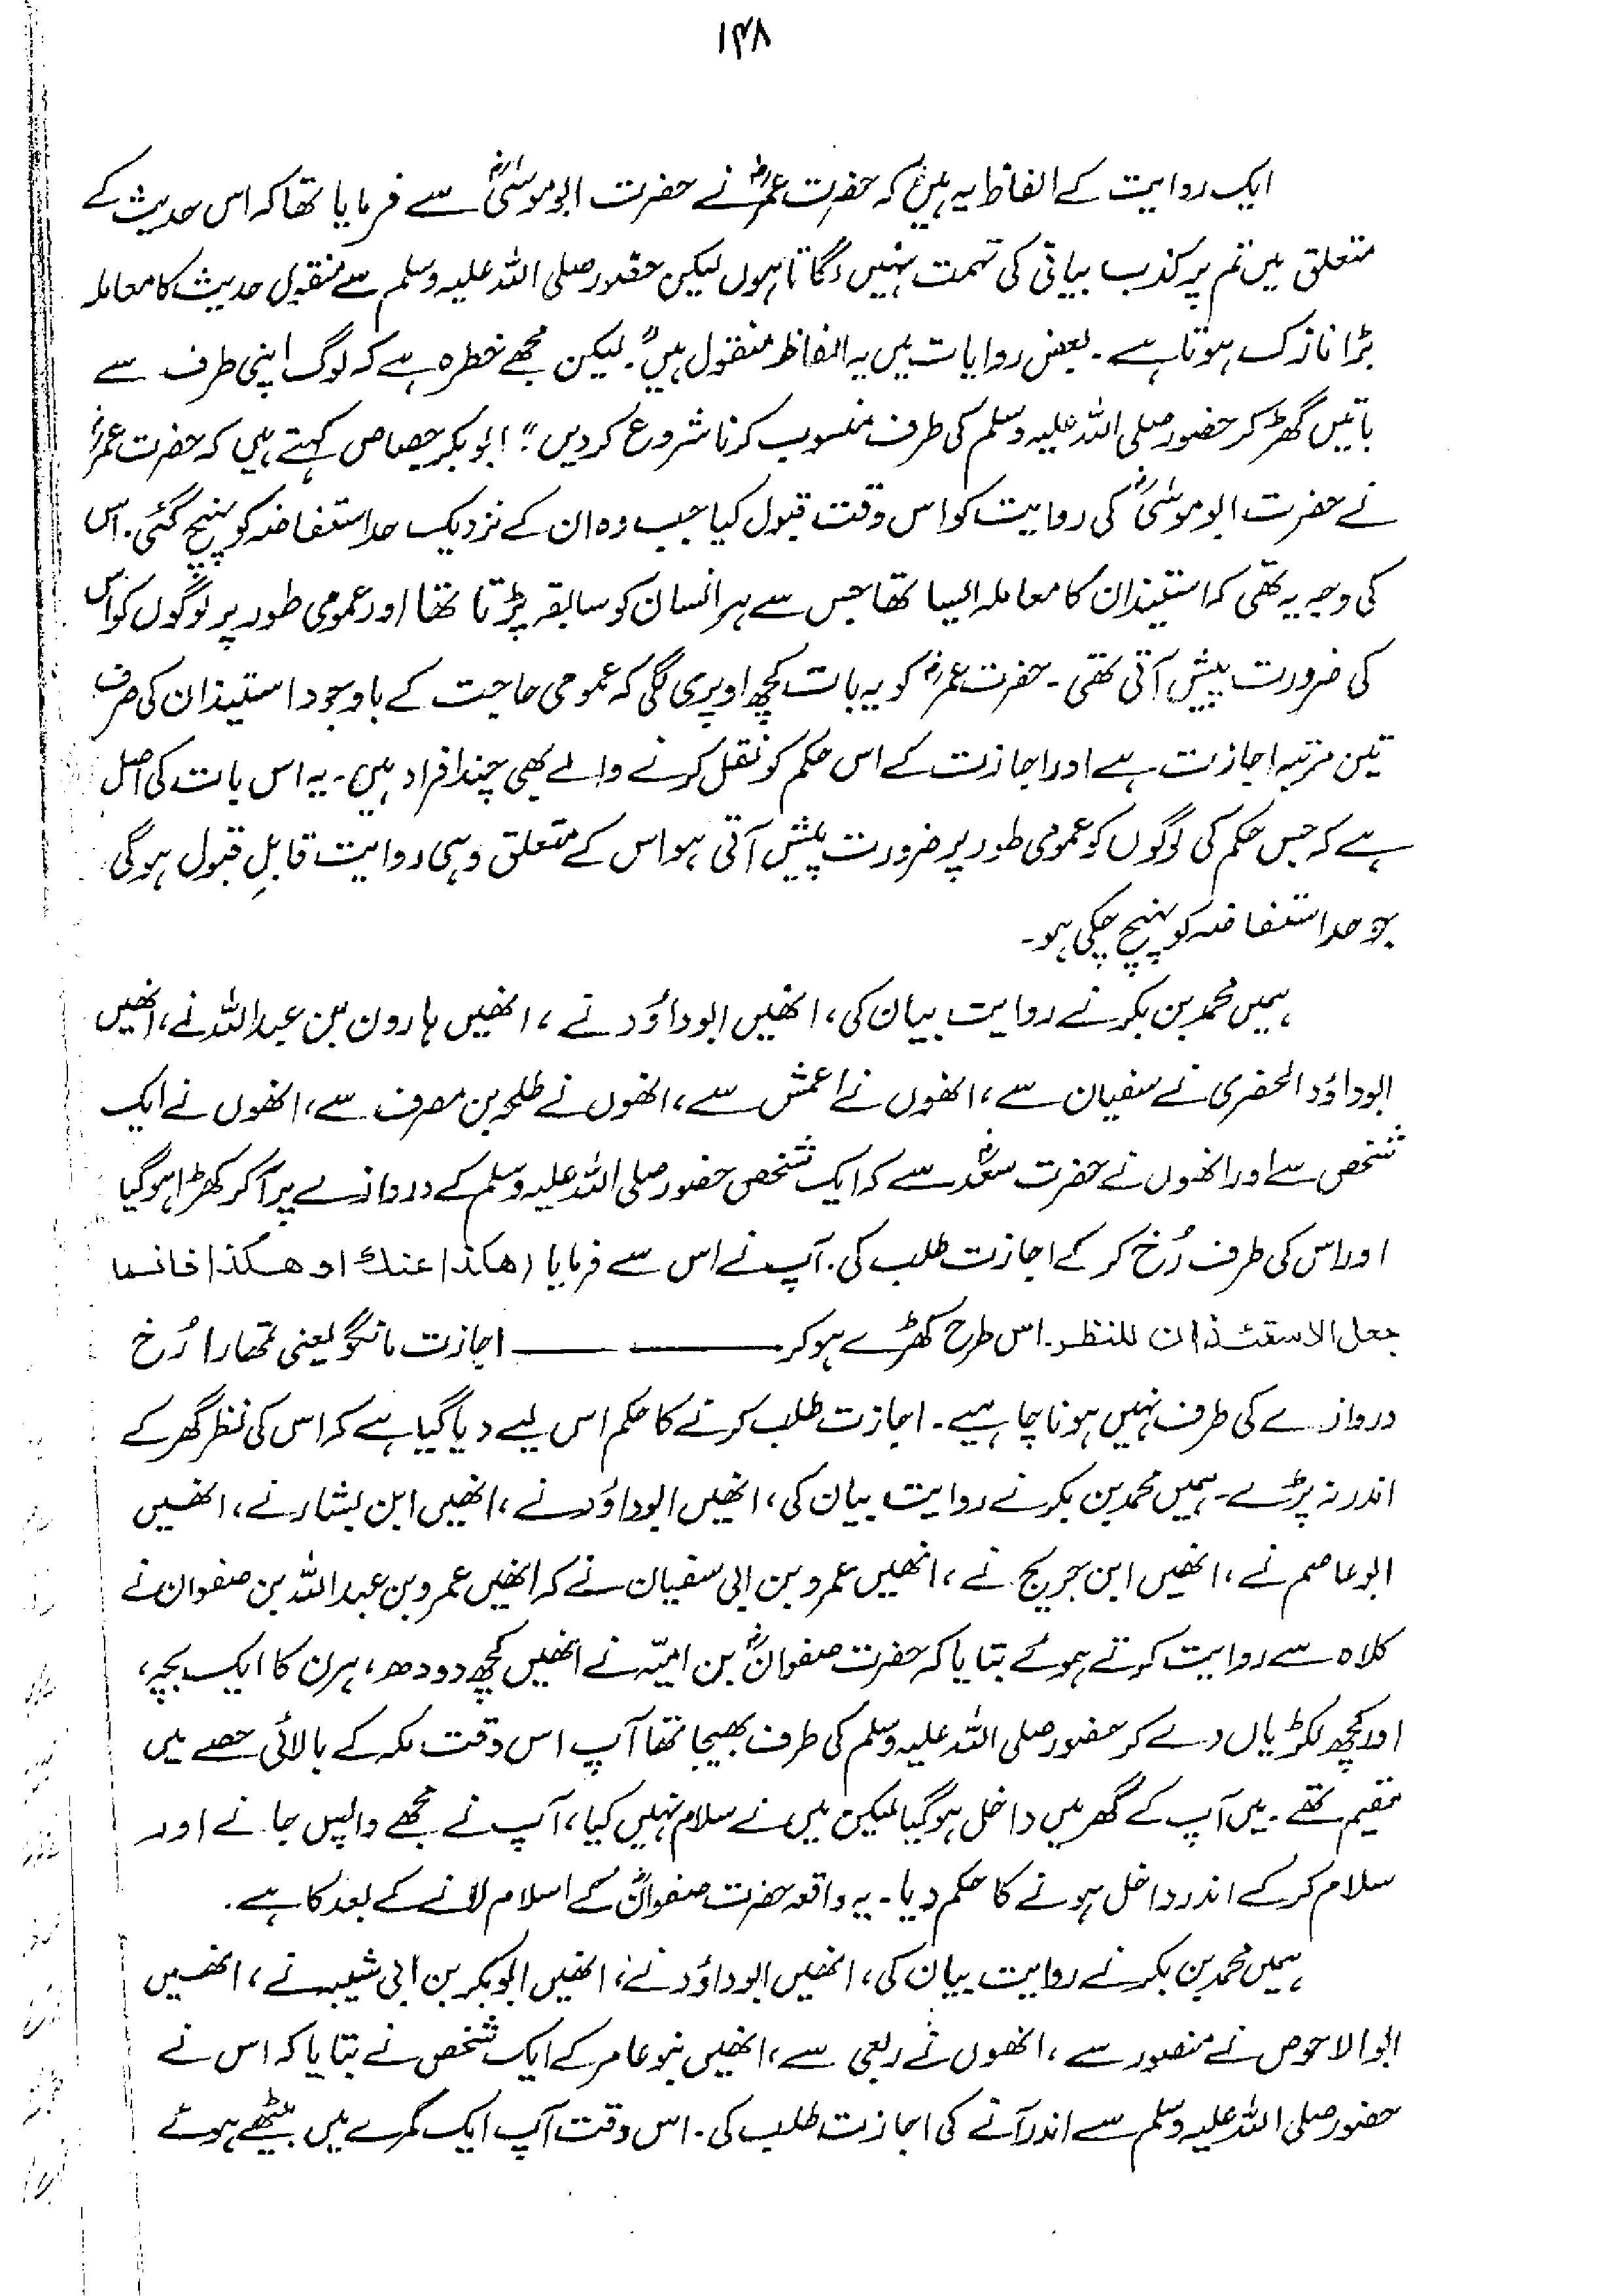 ۱۴۸
ایک روایت کے الفاظ یہ ہیں کہ حضرت عمرؓ نے حضرت ابوموسیٰؓ سے فرمایا تھا کہ اس حدیث کے
متعلق میں تم پر کذب بیانی کی تہمت نہیں لگاتا ہوں لیکن حضور صلی اللہ علیہ وسلم سے منقول حدیث کا معاملہ
بڑا نازک ہوتا ہے۔ بعض روایات میں یہ الفاظ منقول ہیں "۔ لیکن مجھے خطرہ ہے کہ لوگ اپنی طرف سے
باتیں گھڑ کر حضور صلی اللہ علیہ وسلم کی طرف منسوب کرنا شروع کر دیں"۔ ابوبکر جصاص کہتے ہیں کہ حضرت عمرؓ
نے حضرت ابوموسیٰؓ کی روایت کو اس وقت قبول کیا جب وہ ان کے نزدیک حد استفاضہ کو پہنچ گئی۔ اس
کی وجہ یہ تھی کہ استیذان کا معاملہ ایسا تھا جس سے ہر انسان کو سابقہ پڑتا تھا اور عمومی طور پر لوگوں کو اس
کی ضرورت پیش آتی تھی۔ حضرت عمرؓ کو یہ بات کچھ اوپری لگی کہ عمومی حاجت کے باوجود استیذان کی صرف
تین مرتبہ اجازت ہے اور اجازت کے اس حکم کو نقل کرنے والے بھی چند افراد ہیں۔ یہ اس بات کی اصل
ہے کہ جس حکم کی لوگوں کو عمومی طور پر ضرورت پیش آتی ہو اس کے متعلق وہی روایت قابلِ قبول ہوگی
جو حد استفاضہ کو پہنچ چکی ہو۔
ہمیں محمد بن بکر نے روایت بیان کی، انھیں ابوداؤد نے، انھیں ہارون بن عبداللہ نے، انھیں
ابوداؤد الحفری نے سفیان سے، انھوں نے اعمش سے، انھوں نے طلحہ بن مصرف سے، انھوں نے ایک
شخص سے اور انھوں نے حضرت سعدؓ سے کہ ایک شخص حضور صلی اللہ علیہ وسلم کے دروازے پر آکر کھڑا ہوگیا
اور اس کی طرف رُخ کر کے اجازت طلب کی۔ آپ نے اس سے فرمایا (ھکذا عنک او ھکذا فانما
جعل الاستئذان للنظر۔ اس طرح کھڑے ہوکر ——— ——— اجازت مانگو یعنی تمھارا رُخ
دروازے کی طرف نہیں ہونا چاہیے۔ اجازت طلب کرنے کا حکم اس لیے دیا گیا ہے کہ اس کی نظر گھر کے
اندر نہ پڑے۔ ہمیں محمد بن بکر نے روایت بیان کی، انھیں ابوداؤد نے، انھیں ابن بشار نے، انھیں
ابوعاصم نے، انھیں ابن جریج نے، انھیں عمرو بن ابی سفیان نے کہ انھیں عمرو بن عبداللہ بن صفوان نے
کلاہ سے روایت کرتے ہوئے بتایا کہ حضرت صفوانؓ بن امیّہ نے انھیں کچھ دودھ، ہرن کا ایک بچہ،
اور کچھ لکڑیاں دے کر حضور صلی اللہ علیہ وسلم کی طرف بھیجا تھا آپ اس وقت مکہ کے بالائی حصے میں
مقیم تھے۔ میں آپ کے گھر میں داخل ہوگیا لیکن میں نے سلام نہیں کیا، آپ نے مجھے واپس جانے اور
سلام کر کے اندر داخل ہونے کا حکم دیا۔ یہ واقعہ حضرت صفوانؓ کے اسلام لانے کے بعد کا ہے۔
ہمیں محمد بن بکر نے روایت بیان کی، انھیں ابوداؤد نے، انھیں ابوبکر بن ابی شیبہ نے، انھیں
ابوالاحوص نے منصور سے، انھوں نے ربعی سے، انھیں بنو عامر کے ایک شخص نے بتایا کہ اس نے
حضور صلی اللہ علیہ وسلم سے اندر آنے کی اجازت طلب کی۔ اس وقت آپ ایک کمرے میں بیٹھے ہوئے